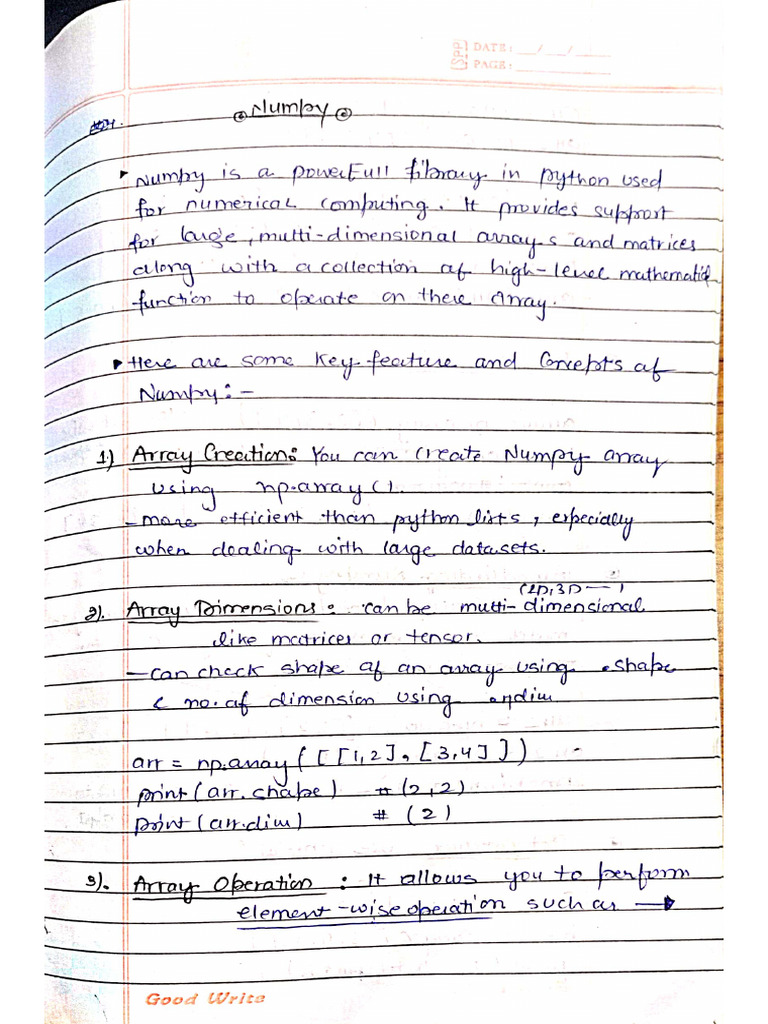 SPP DATE: __/__/__
PAGE:
Numpy
Numpy is a powerfull library in python used
for numerical computing. It provides support
for large, multi-dimensional arrays and matrices
along with a collection of high-level mathematic
function to operate on there array.
Here are some key feature and Concepts of
Numpy:-
1) Array Creation: You can create Numpy array
using np.array().
- more efficient than python lists, especially
when dealing with large datasets.
(2D,3D---)
2). Array Dimensions: can be multi-dimensional
like matrices or tensor.
- can check shape of an array using .shape
& no. of dimension using .ndim
arr = np.array([[1,2], [3,4]])
print(arr.shape) # (2,2)
print(arr.dim) # (2)
3). Array Operation: It allows you to perform
element-wise operation such as →
Good Write